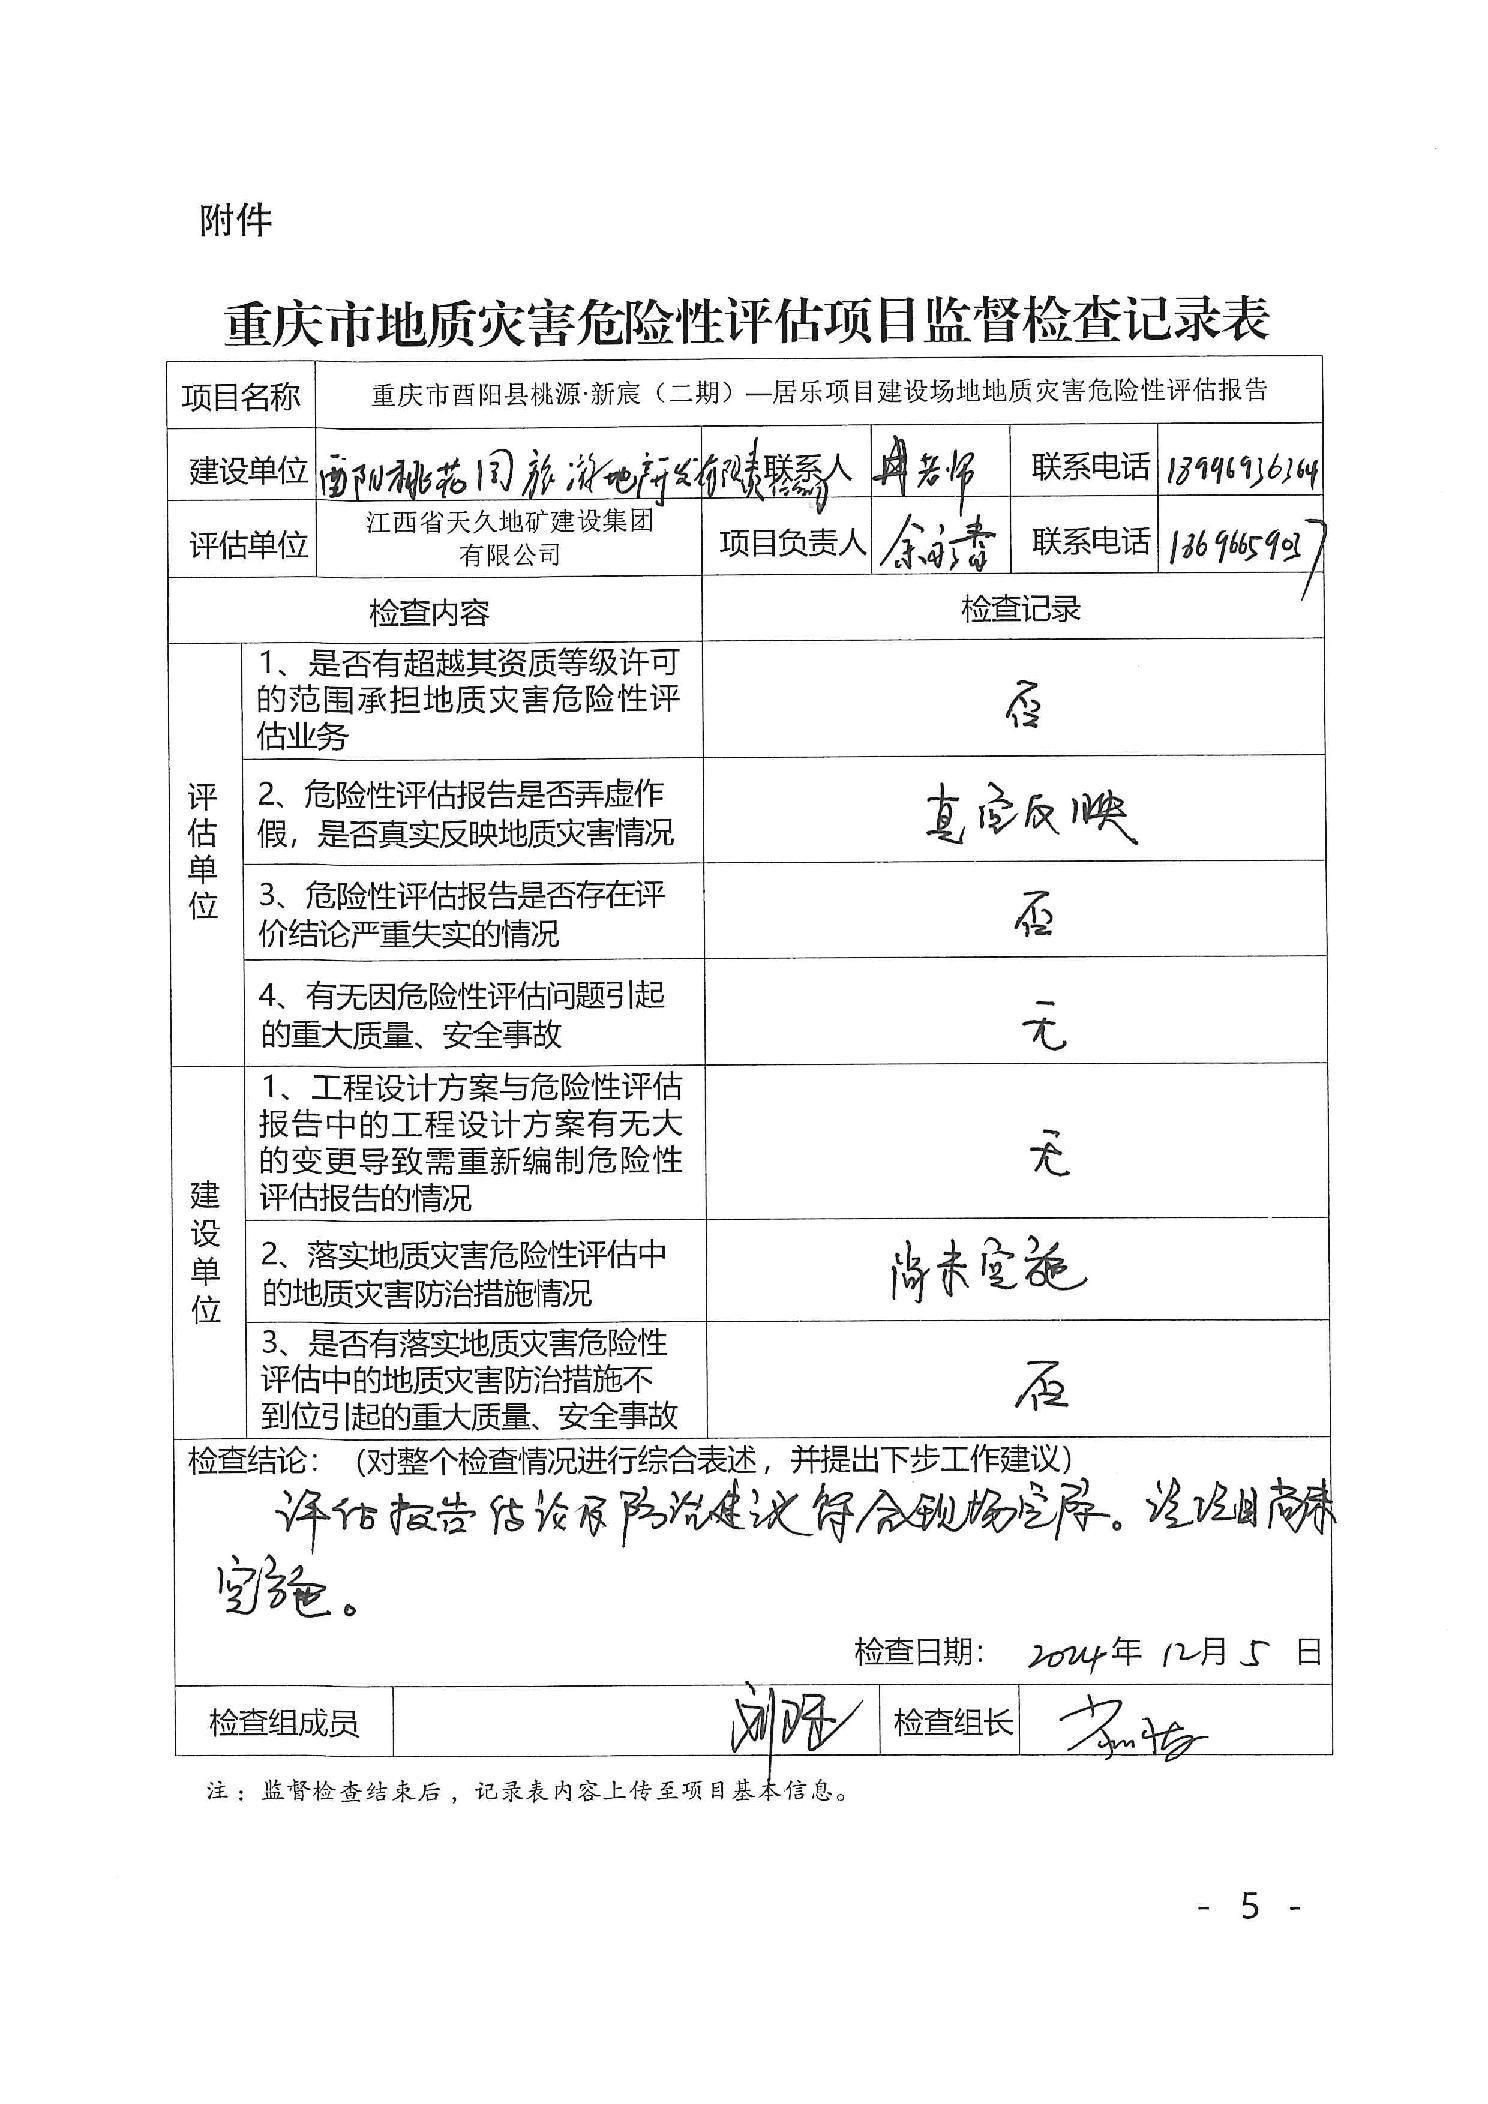 附件
重庆市地质灾害危险性评估项目监督检查记录表
项目名称 重庆市酉阳县桃源·新宸（二期）—居乐项目建设场地地质灾害危险性评估报告
建设单位 酉阳桃花园旅游地产开发有限责任公司 联系人 冉老师 联系电话 13996936364
评估单位 江西省天久地矿建设集团
有限公司 项目负责人 联系电话 13696659037
检查内容 检查记录
评估单位
1、是否有超越其资质等级许可
的范围承担地质灾害危险性评
估业务
否
2、危险性评估报告是否弄虚作
假，是否真实反映地质灾害情况
真实反映
3、危险性评估报告是否存在评
价结论严重失实的情况
否
4、有无因危险性评估问题引起
的重大质量、安全事故
无
建设单位
1、工程设计方案与危险性评估
报告中的工程设计方案有无大
的变更导致需重新编制危险性
评估报告的情况
无
2、落实地质灾害危险性评估中
的地质灾害防治措施情况
尚未实施
3、是否有落实地质灾害危险性
评估中的地质灾害防治措施不
到位引起的重大质量、安全事故
否
检查结论：（对整个检查情况进行综合表述，并提出下步工作建议）
评估报告结论及防治建议符合现场实际。该项目尚未
实施。
检查日期： 2024年 12月 5 日
检查组成员 检查组长
注：监督检查结束后，记录表内容上传至项目基本信息。
- 5 -